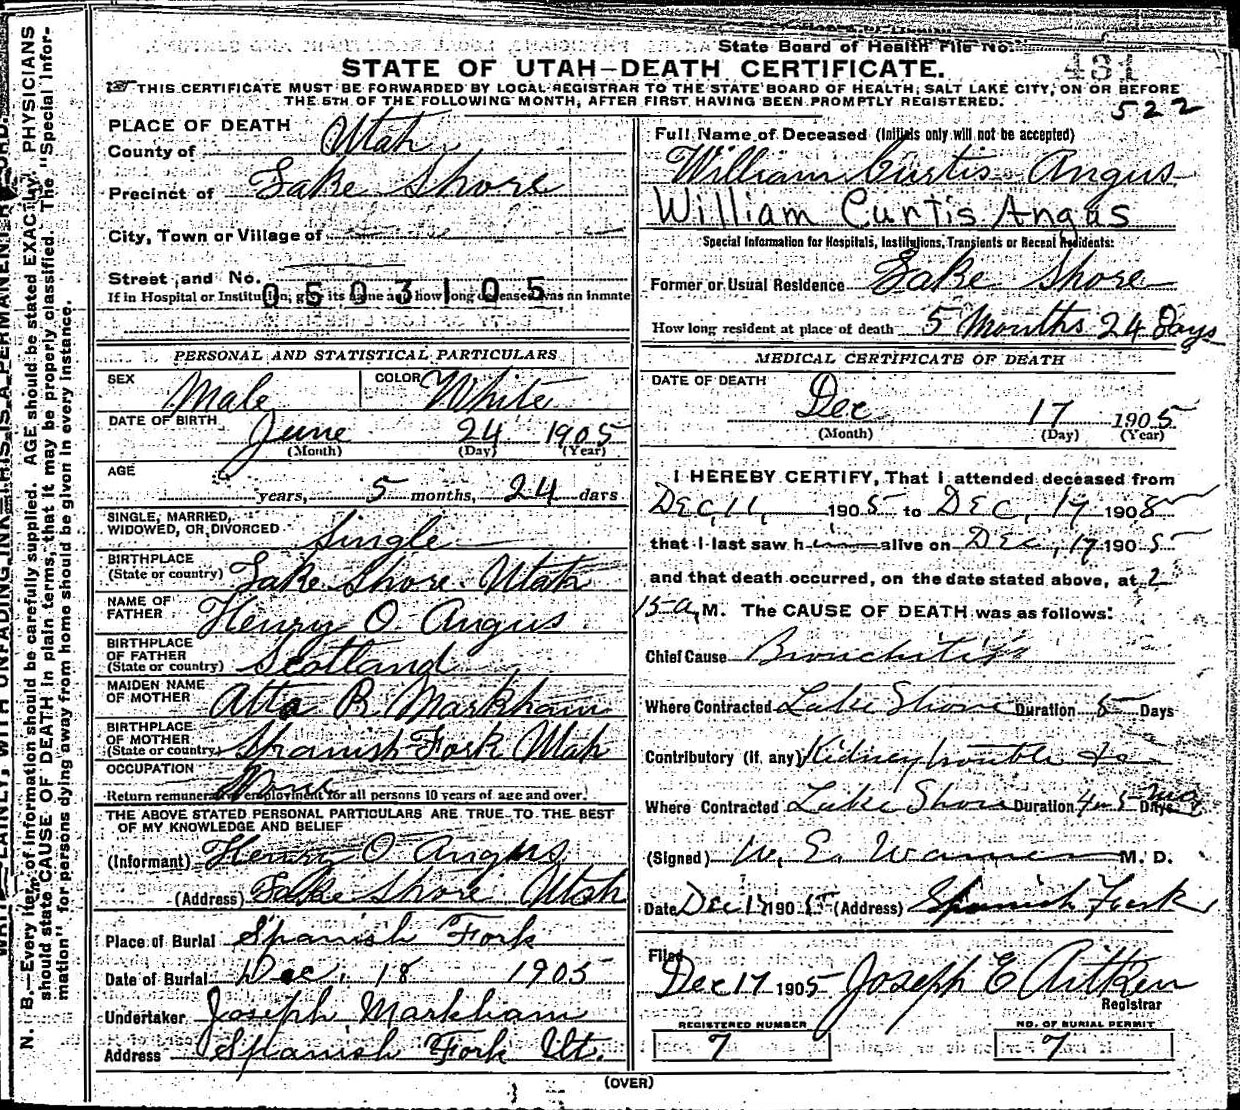 State Board of Health File No.
431
STATE OF UTAH—DEATH CERTIFICATE.
THIS CERTIFICATE MUST BE FORWARDED BY LOCAL REGISTRAR TO THE STATE BOARD OF HEALTH, SALT LAKE CITY, ON OR BEFORE
THE 5TH OF THE FOLLOWING MONTH, AFTER FIRST HAVING BEEN PROMPTLY REGISTERED.
522
PLACE OF DEATH
County of Utah
Precinct of Lake Shore
City, Town or Village of
Street and No.
0603105
If in Hospital or Institution, give its name and how long deceased was an inmate
PERSONAL AND STATISTICAL PARTICULARS
SEX Male COLOR White
DATE OF BIRTH June 24 1905
(Month) (Day) (Year)
AGE
years, 5 months, 24 days
SINGLE, MARRIED,
WIDOWED, OR DIVORCED Single
BIRTHPLACE
(State or country) Lake Shore Utah
NAME OF
FATHER Henry O Angus
BIRTHPLACE
OF FATHER
(State or country) Scotland
MAIDEN NAME
OF MOTHER Atta R Markham
BIRTHPLACE
OF MOTHER
(State or country) Spanish Fork Utah
OCCUPATION None
Return remunerative employment for all persons 10 years of age and over.
THE ABOVE STATED PERSONAL PARTICULARS ARE TRUE TO THE BEST
OF MY KNOWLEDGE AND BELIEF
(Informant) Henry O Angus
(Address) Lake Shore Utah
Place of Burial Spanish Fork
Date of Burial Dec. 18 1905
Undertaker Joseph Markham
Address Spanish Fork Ut.
Full Name of Deceased (Initials only will not be accepted)
William Curtis Angus
William Curtis Angus
Special Information for Hospitals, Institutions, Transients or Recent Residents:
Former or Usual Residence Lake Shore
How long resident at place of death 5 Months 24 Days
MEDICAL CERTIFICATE OF DEATH
DATE OF DEATH
Dec 17 1905
(Month) (Day) (Year)
I HEREBY CERTIFY, That I attended deceased from
Dec, 11, 1905 to Dec, 17 1905
that I last saw him alive on Dec, 17 1905
and that death occurred, on the date stated above, at 2
15 a, M. The CAUSE OF DEATH was as follows:
Chief Cause Bronchitis
Where Contracted Lake Shore Duration 5 Days
Contributory (if any) Kidney trouble
Where Contracted Lake Shore Duration 4 or 5 Days mos
(Signed) W. E. Warner M. D.
Date Dec 17 1905 (Address) Spanish Fork
Filed
Dec 17 1905 Joseph E Aitken
Registrar
REGISTERED NUMBER
7
NO. OF BURIAL PERMIT
7
(OVER)
N. B.—Every item of information should be carefully supplied. AGE should be stated EXACTLY. PHYSICIANS
should state CAUSE OF DEATH in plain terms, that it may be properly classified. The "Special Infor-
mation" for persons dying away from home should be given in every instance.